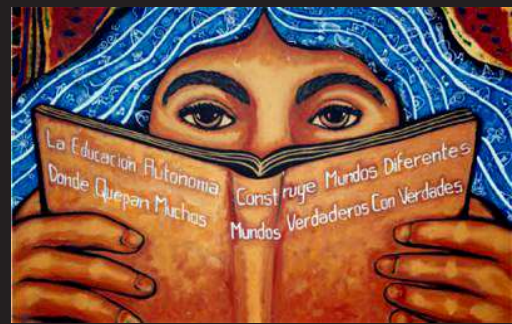 La Educacion Autonoma Construye Mundos Diferentes
Donde Quepan Muchos Mundos Verdaderos Con Verdades